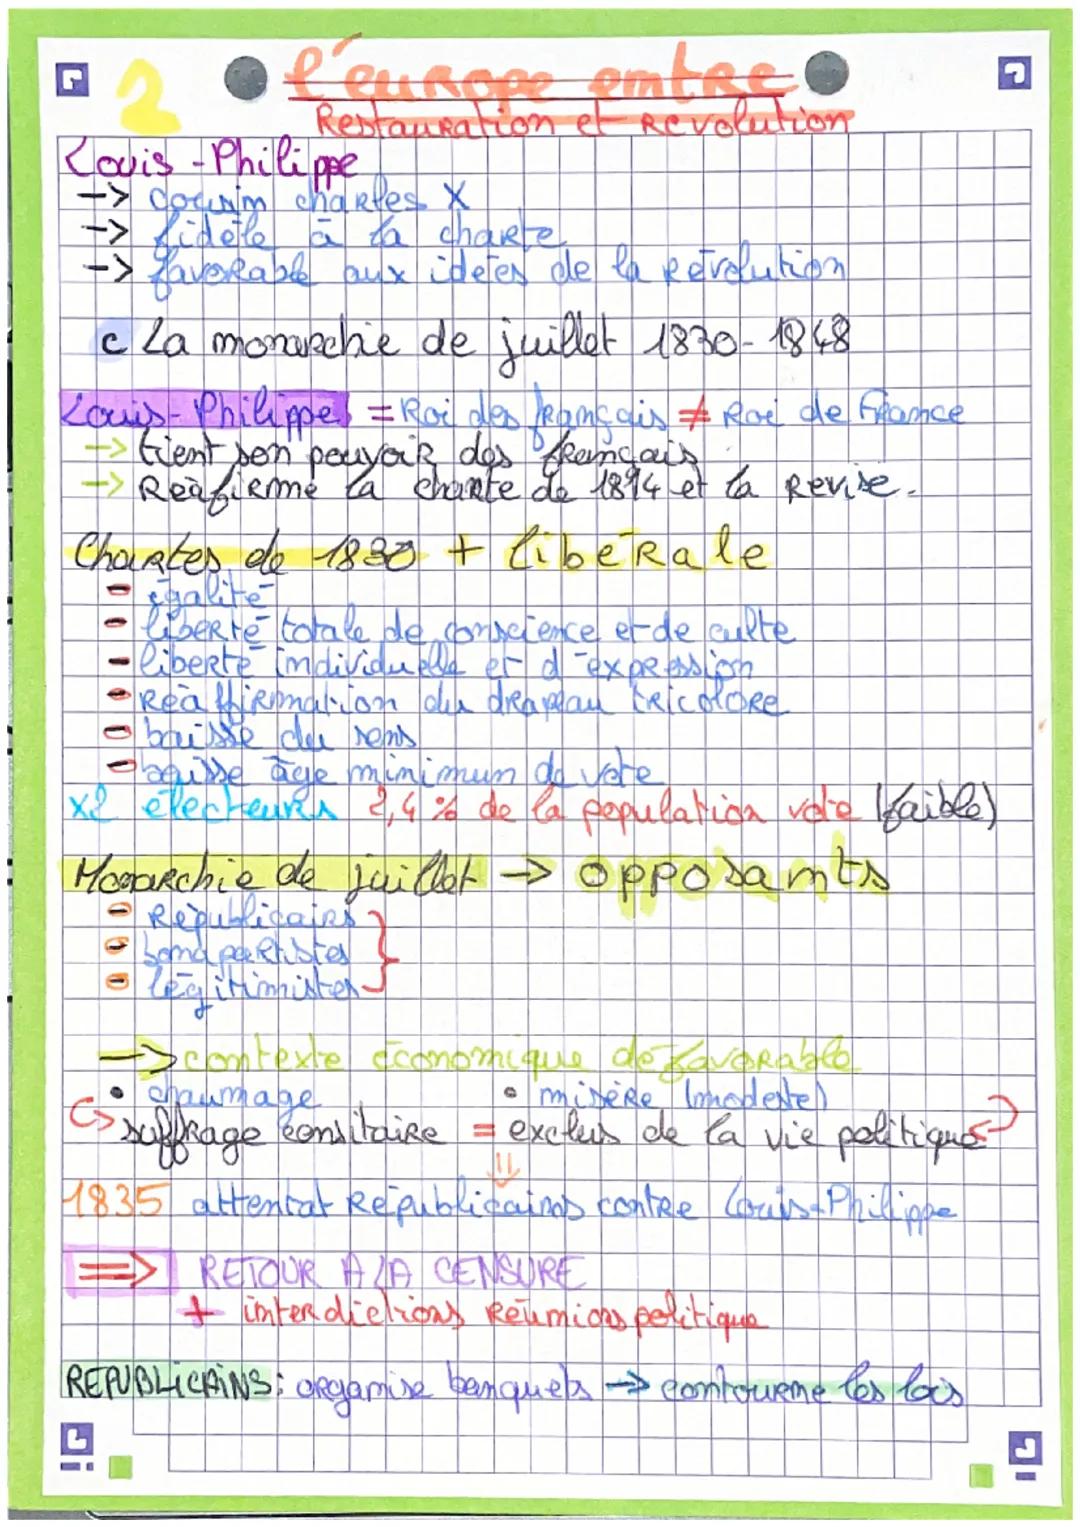 2
l'europe entre
Restauration et Revolution
Louis-Philippe
-> cousin charles X
-> fidèle à la charte
-> favorable aux idées de la Révolution
c La monarchie de juillet 1830-1848
Louis-Philippe = Roi des français ≠ Roi de France
-> tient son pouvoir des français
-> Réafirme la charte de 1814 et la Revise.
Chartes de 1830 + libérale
- égalité
- liberté totale de conscience et de culte
- liberté individuelle et d'expression
- Réaffirmation du drapeau tricolore
- baisse du sens
- baisse âge minimun de vote
x2 électeurs 2,4 % de la population vote (faible)
Monarchie de juillet -> opposants
- Républicains
- bonapartistes
- légitimistes
-> contexte économique défavorable
• chaumage • misère (modeste)
suffrage censitaire = exclus de la vie politique
1835 attentat Républicains contre Louis-Philippe
=> RETOUR A LA CENSURE
+ interdictions Réunions politique
REPUBLiCAiNS: organise banquets -> contourne les lois